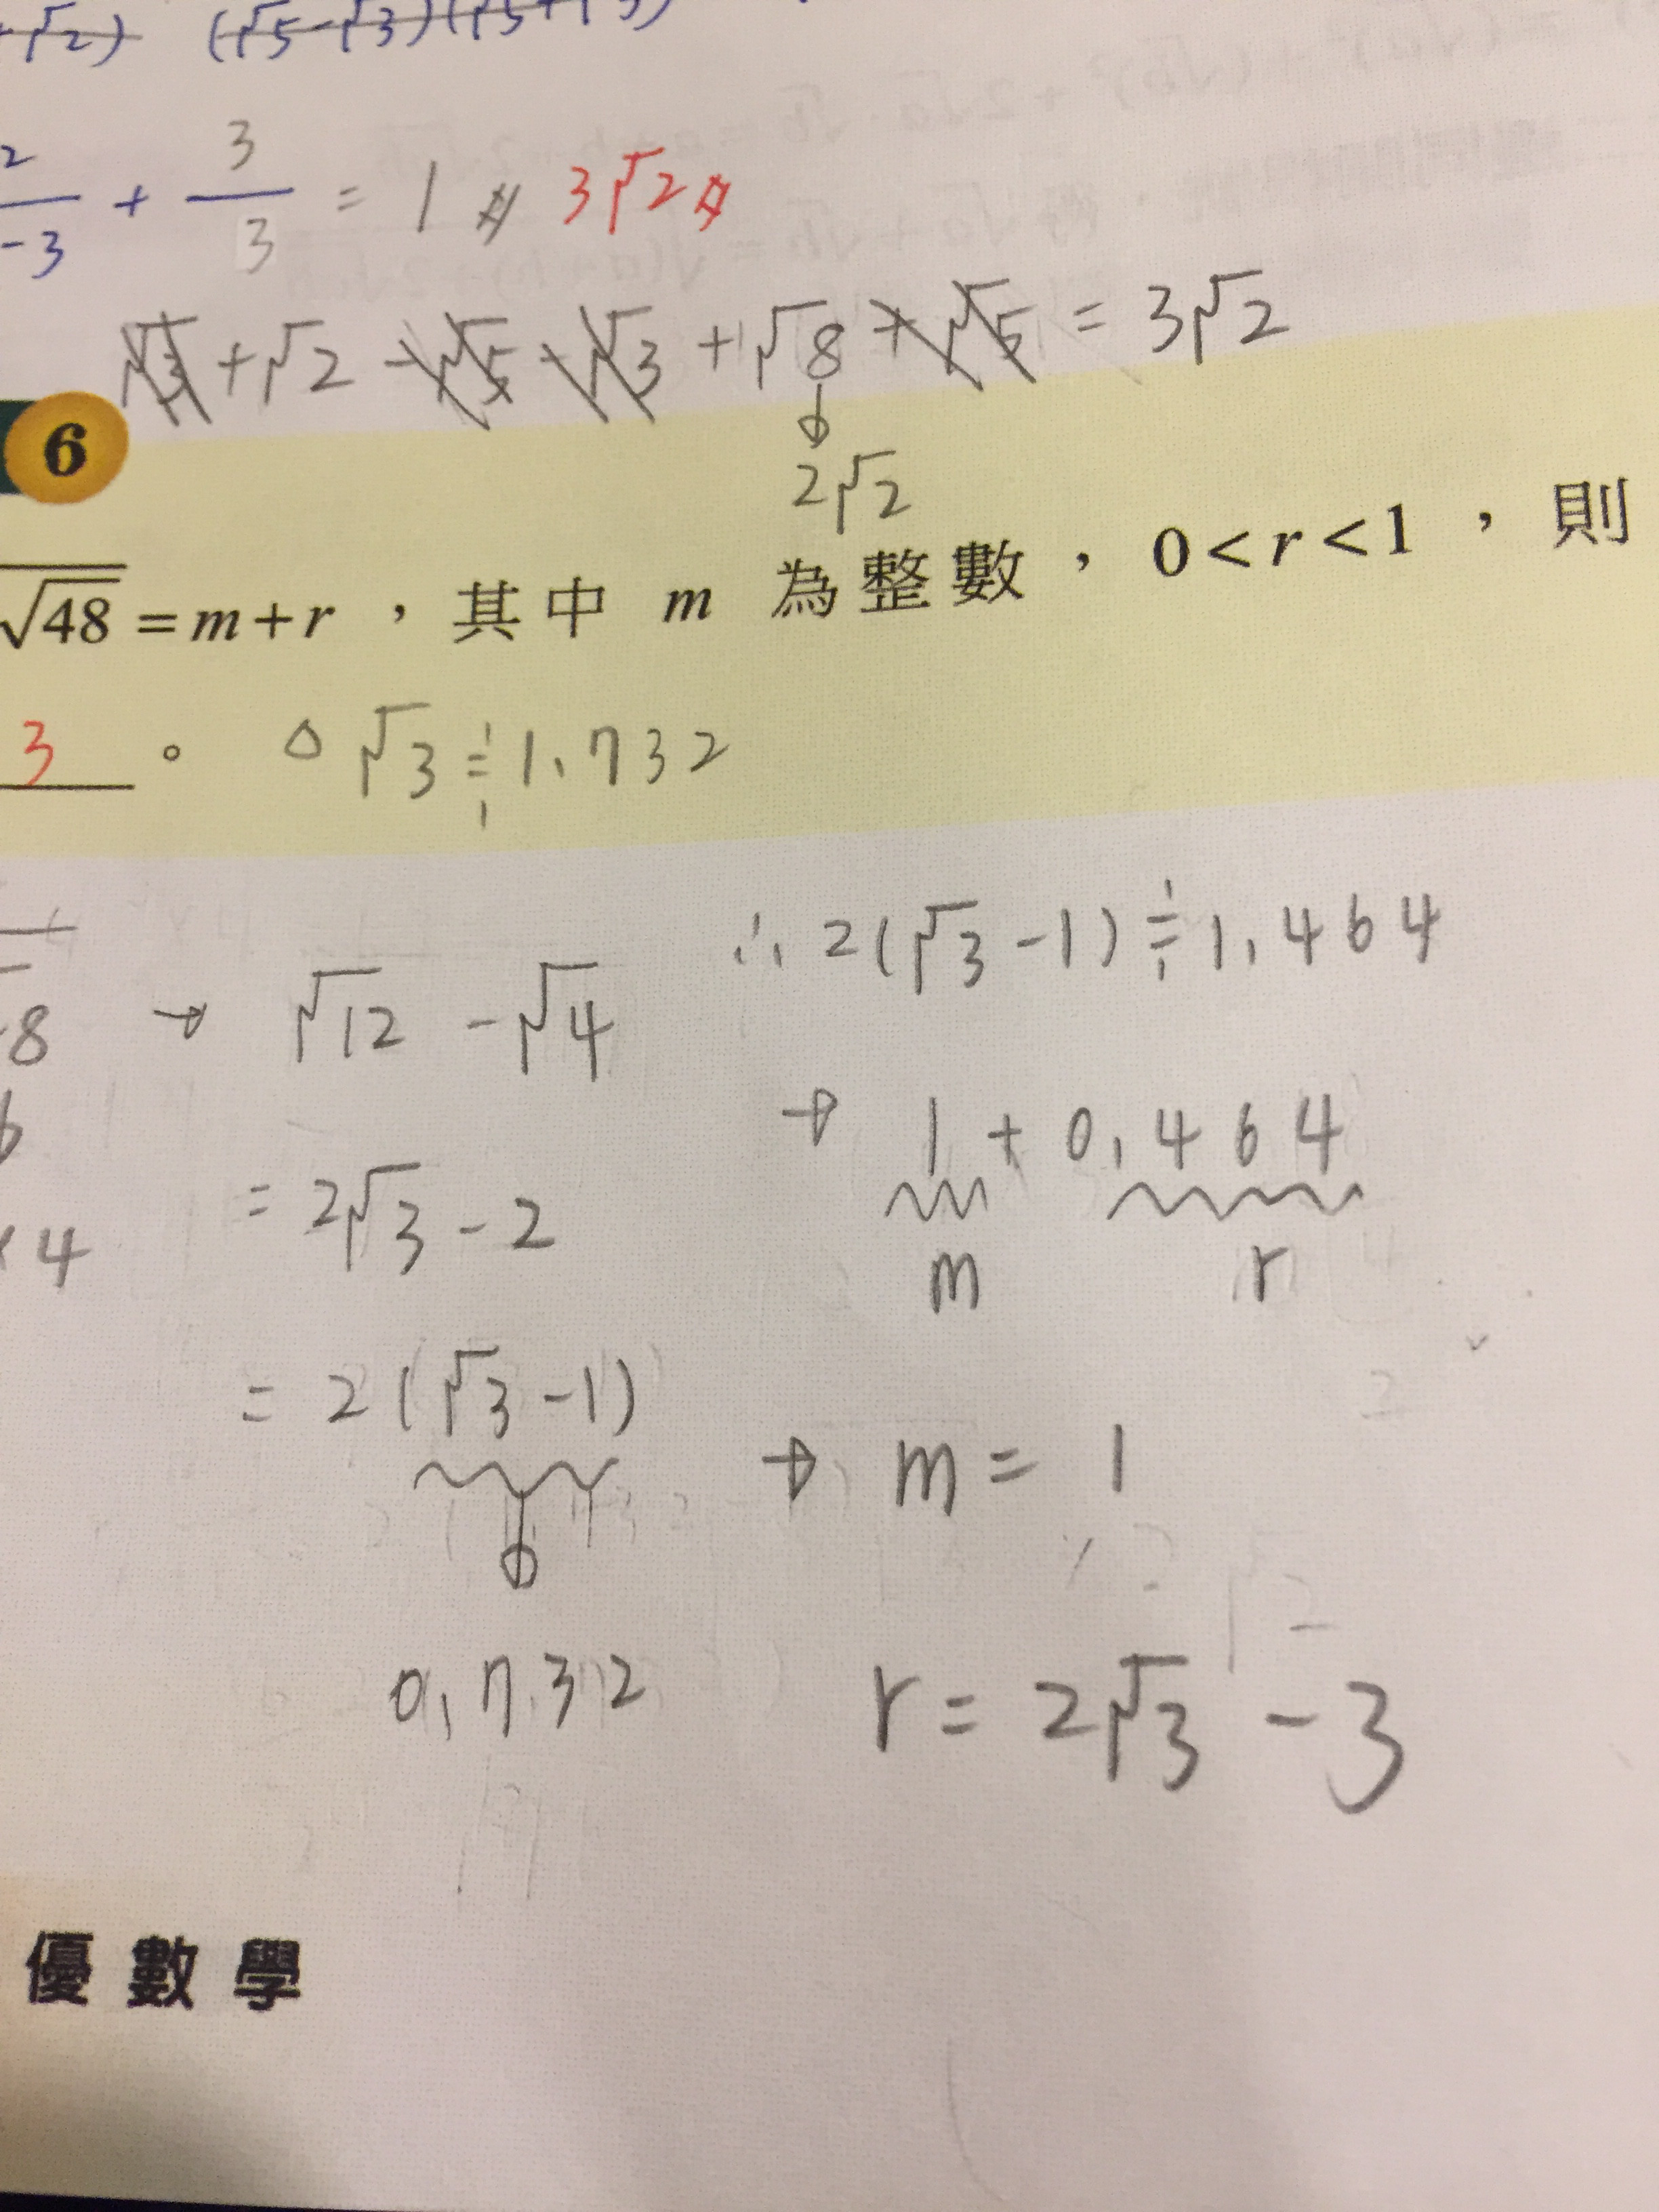 +√2) (√5-√3)(√5+√3)
2/-3 + 3/3 = 1 3√2
√3 + √2 - √5 - √3 + √8 + √5 = 3√2
2√2
6
√48 = m + r ，其中 m 為整數，0 < r < 1 ，則
3 。 △ √3 ≒ 1.732
∴ 2(√3 - 1) ≒ 1.464
8 → √12 - √4
→ 1 + 0.464
m r
6
= 2√3 - 2
× 4
= 2(√3 - 1)
→ m = 1
0.732
r = 2√3 - 3
優數學